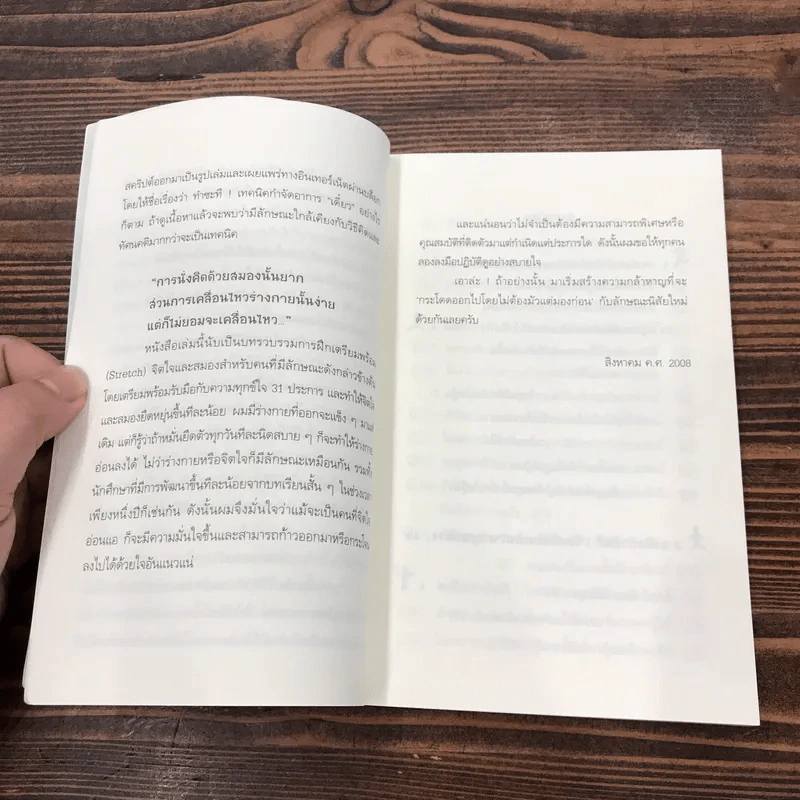 สคริปต์ออกมาเป็นรูปเล่มและเผยแพร่ทางอินเทอร์เน็ตผ่านบล็อก
โดยให้ชื่อเรื่องว่า ทำซะที ! เทคนิคกำจัดอาการ "เดี๋ยว" อย่างไร
ก็ตาม ถ้าดูเนื้อหาแล้วจะพบว่ามีลักษณะใกล้เคียงกับวิธีคิดและ
ทัศนคติมากกว่าจะเป็นเทคนิค
"การนั่งคิดด้วยสมองนั้นยาก
ส่วนการเคลื่อนไหวร่างกายนั้นง่าย
แต่ก็ไม่ยอมจะเคลื่อนไหว..."
หนังสือเล่มนี้นับเป็นบทรวบรวมการฝึกเตรียมพร้อม
(Stretch) จิตใจและสมองสำหรับคนที่มีลักษณะดังกล่าวข้างต้น
โดยเตรียมพร้อมรับมือกับความทุกข์ใจ 31 ประการ และทำให้จิตใจ
และสมองยืดหยุ่นขึ้นทีละน้อย ผมมีร่างกายที่ออกจะแข็ง ๆ มาแต่
เดิม แต่ก็รู้ว่าถ้าหมั่นยืดตัวทุกวันทีละนิดสบาย ๆ ก็จะทำให้ร่างกาย
อ่อนลงได้ ไม่ว่าร่างกายหรือจิตใจก็มีลักษณะเหมือนกัน รวมทั้ง
นักศึกษาที่มีการพัฒนาขึ้นทีละน้อยจากบทเรียนสั้น ๆ ในช่วงเวลา
เพียงหนึ่งปีก็เช่นกัน ดังนั้นผมจึงมั่นใจว่าแม้จะเป็นคนที่จิตใจ
อ่อนแอ ก็จะมีความมั่นใจขึ้นและสามารถก้าวออกมาหรือกระโดด
ลงไปได้ด้วยใจอันแน่วแน่
และแน่นอนว่าไม่จำเป็นต้องมีความสามารถพิเศษหรือ
คุณสมบัติที่ติดตัวมาแต่กำเนิดแต่ประการใด ดังนั้นผมขอให้ทุกคน
ลองลงมือปฏิบัติดูอย่างสบายใจ
เอาล่ะ ! ถ้าอย่างนั้น มาเริ่มสร้างความกล้าหาญที่จะ
'กระโดดออกไปโดยไม่ต้องมัวแต่มองก่อน' กับลักษณะนิสัยใหม่
ด้วยกันเลยครับ
สิงหาคม ค.ศ. 2008